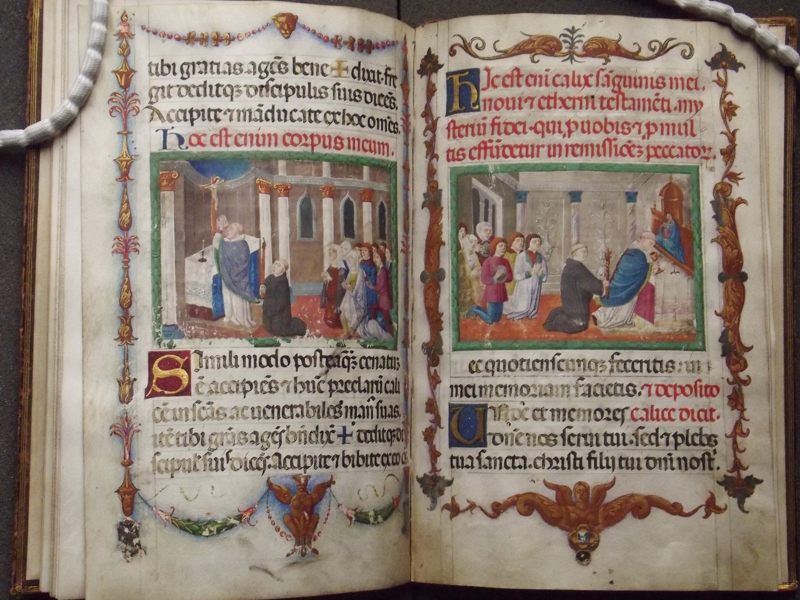 tibi gratias agēs bene ✚ dixit. fre
git deditqꝫ discipulis suis dicēs.
Accipite ⁊ māducate ex hoc om̄es.
Hoc est enim corpus meum.
Simili modo posteaqꝫ cenatuꝫ
ē accipiēs ⁊ hūc preclarū cali
cē in scās ac venerabiles man⁹ suas.
itē tibi grās agēs bn̄dix̄ ✚ deditqꝫ di
scipulis suis dicēs. Accipite ⁊ bibite ex eo
Hic est eni calix sāguinis mei.
noui ⁊ etherni testamēti. my
sterium fidei. qui ꝓ uobis ⁊ ꝓ mul
tis effūdetur in remissiōeꝫ peccatoꝝ.
ec quotienscunqꝫ feceritis. in
mei memoriam facietis. ⁊ deposito
Unde et memores calice dicit.
dn̄e nos serui tui. sed ⁊ plebs
tua sancta. christi filij tui dn̄i nost